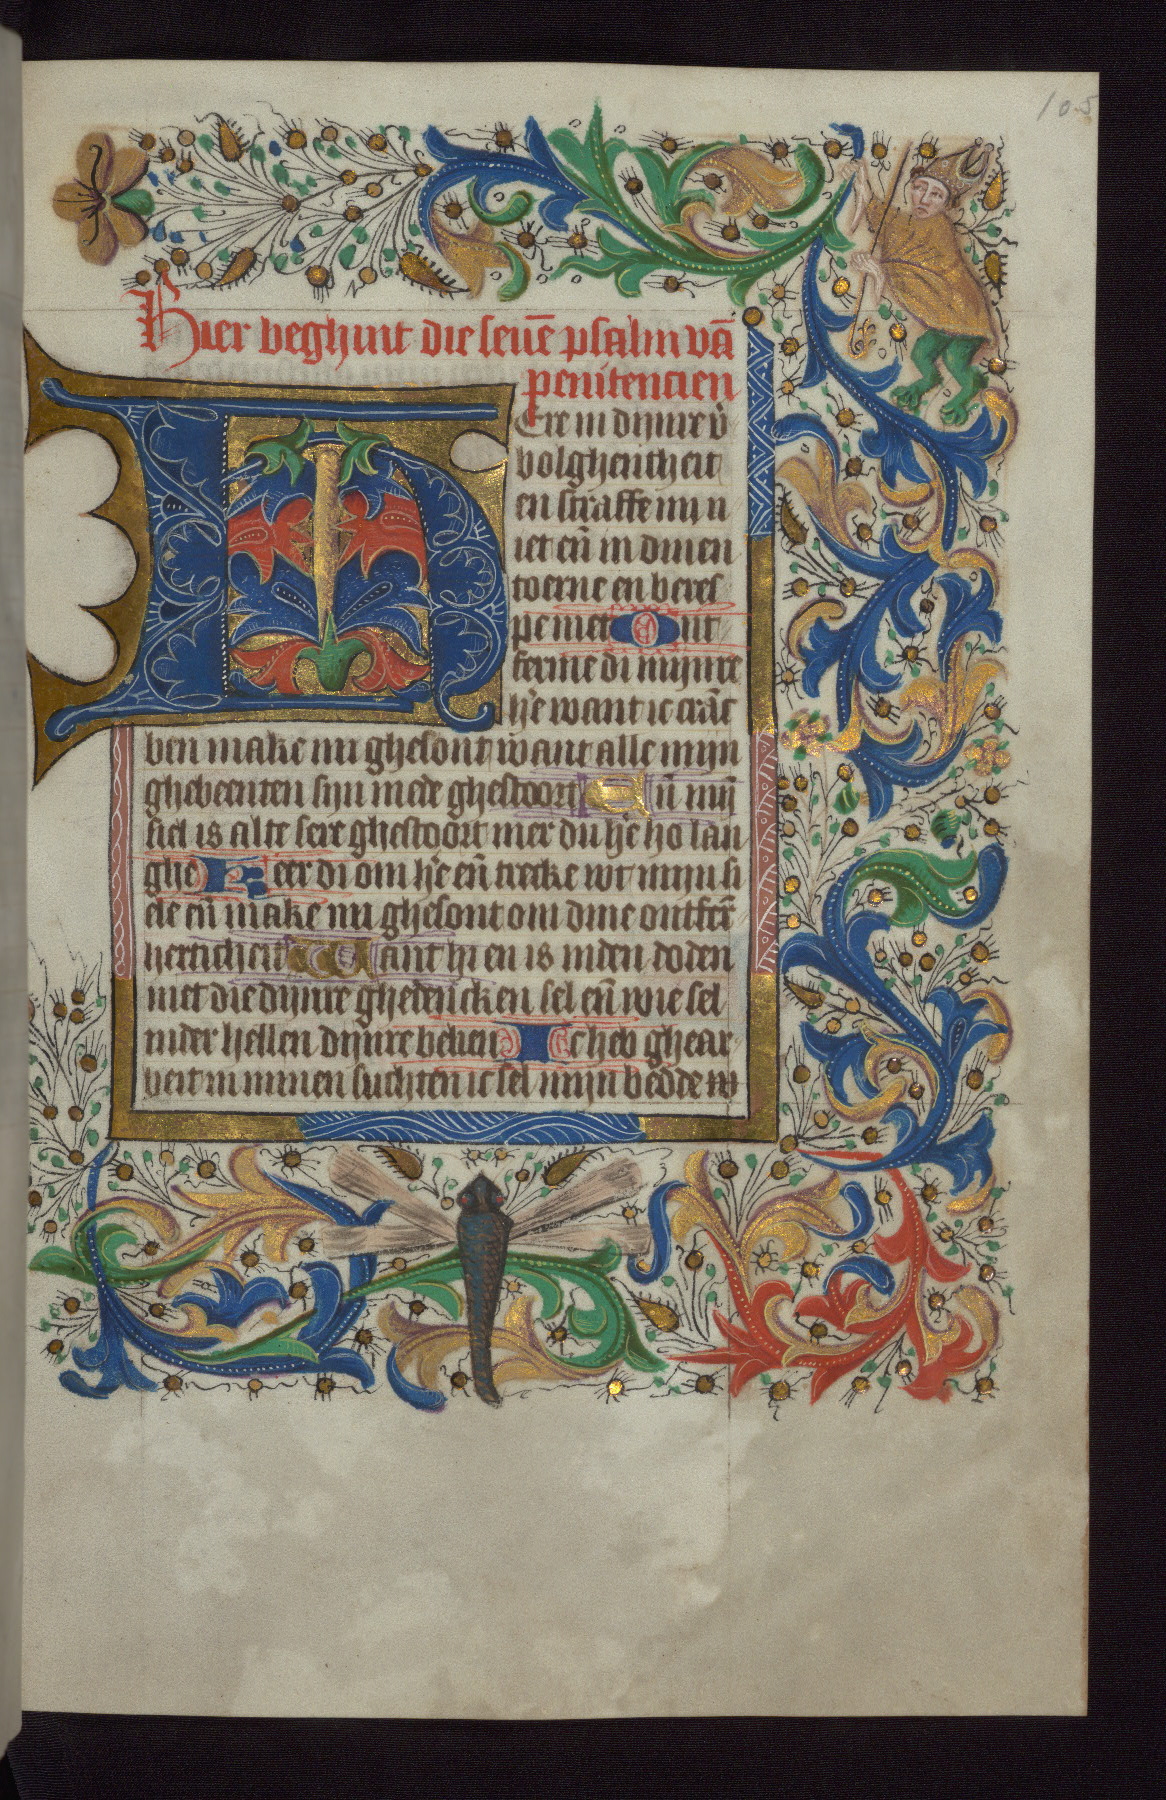 105
Hier beghint die seuē psalm vā
penitencien
Here in dijnre v̄
bolghentheit
en straffe mi n
iet eñ in dinen
toerne en beres
pe niet Ont
ferme di mijnre
hē want ic cranc
ben make mi ghesont want alle mijn
ghebeenten sijn mede ghestoort Eñ mijn
siel is alte sere ghestoort mer du hē ho lan
ghe Keer di om hē eñ trecke wt mijn si
ele eñ make mi ghesont om dine ontfer
herticheit Want hi en is inden doden
niet die dijnre ghedencken sel eñ wie sel
inder hellen dijnre belien Ic heb ghear
beit in minen suchten ic sel mijn bedde w